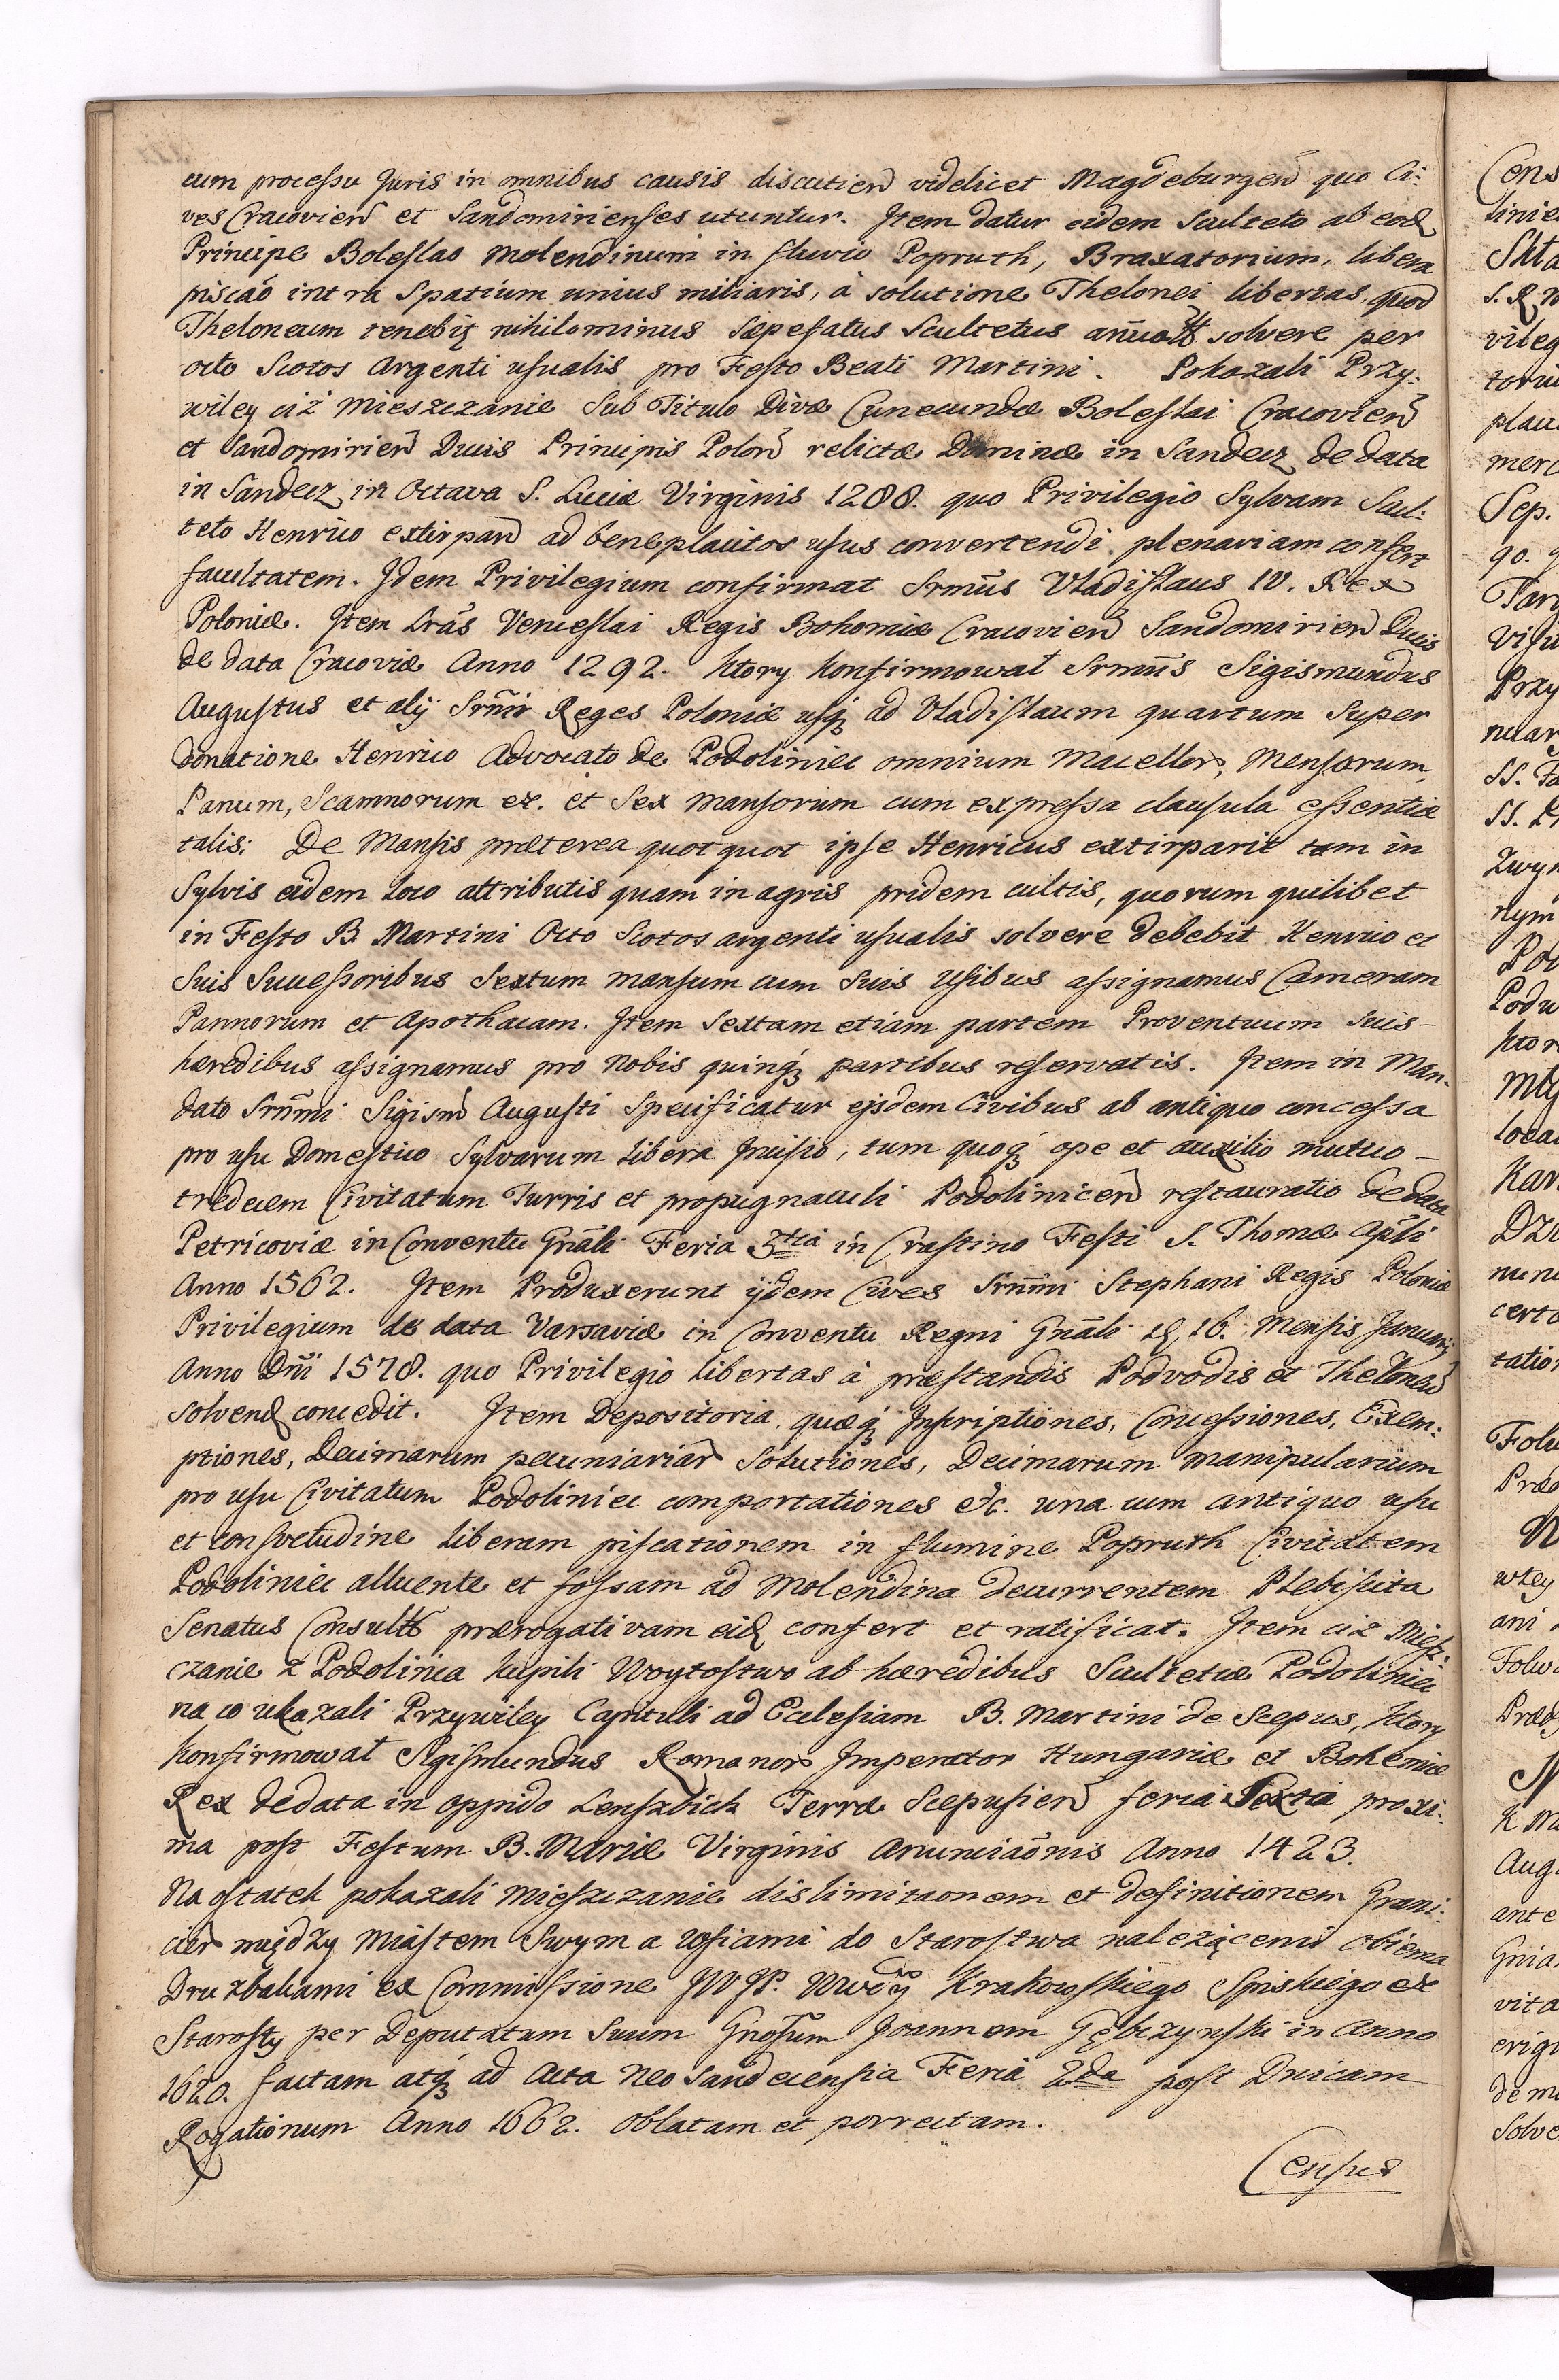 cum processu Juris in omnibus causis discutien videlicet Magdeburgen quo Ci:
ves Cracovien et Sandomirienses utuntur. Item datur eidem Sculteto ab eod
Principe Boleslao Molendinum in fluvio Popruth, Braxatorium, libera
piscaõ intra Spatium unius miliaris, à solutione Thelonei libertas, quod
Theloneum tenebit nihilominus Sæpefatus Scultetus solvere per
octo Scotos Argenti usualis pro Festo Beati Martini. Pokazali Przy:
wiley ciż Mieszczanie Sub Titulo Divæ Cunecundæ Boleslai Cracovien
et Sandomirien Ducis Principis Polon relictæ Dominæ in Sandecz de data
in Sandecz in Octava S. Luciæ Virginis 1288. quo Privilegio Sylvam Scul:
teto Henrico extirpand ad beneplacitos usus convertendi plenariam confert
facultatem. Idem Privilegium confirmat Srmũs Vladislaus IV. Rex
Poloniæ. Item Lrãs Venceslai Regis Bohomiæ Cracovien Sandomirien Ducis
de data Cracoviæ Anno 1292. ktory konfirmował Srmũs Sigismundus
Augustus et alij Srm̃i Reges Poloniæ usq́ ad Vladislaum quartum Super
donatione Henrico Advocato de Podoliniec omnium Macellor, Mensorum,
Panum, Scamnorum ec. et Sex Mansorum cum expressa clausula essentiæ
talis: De Mansis præterea quotquot ipse Henricus extirparit tam in
Sylvis eidem loco attributis quam in agris pridem cultis, quorum quilibet
in Festo B. Martini Octo Scotos argenti usualis solvere debebit Henrico et
Suis Successoribus Sextum mansum cum Suis Usibus assignamus Cameram
Pannorum et Apothacam. Item Sextam etiam partem Proventuum Suis
hæredibus assignamus pro Nobis quinq́ partibus reservatis. Item in Man-
dato Srm̃i Sigism Augusti Specificatur ejsdem Civibus ab antiquo concessa
pro usu Domestico Sylvarum libera Incisio, tum quoq́ ope et auxilio mutuo
tredecem Civitatum Turris et propugnaculi Podolinicen restauratio de data
Petricoviæ in Conventu Gnãli Feria 3tia in Crastino Festi S. Thomæ Apli
Anno 1562. Item Produxerunt ijdem Cives Srm̃i Stephani Regis Poloniæ
Privilegium de data Varsaviæ in Conventu Regni Gnãli 16. Mensis Januarij
Anno Dni 1578. quo Privilegio libertas à præstandis Podvodis et Theloneo
solvend concedit. Item Depositoria quæq́ Inscriptiones, Concessiones, Exem:
ptiones, Decimarum pecuniariar Solutiones, Decimarum manipularium
pro usu Civitatum Podoliniec comportationes etc. una cum antiquo usu
et consvetudine liberam piscationem in flumine Popruth Civitatem
Podoliniec alluente et fossam ad Molendina decurrentem Plebiscita
Senatus Consulta prærogativam eid confert et ratificat. Item ciż Miesz:
czanie z Podolinca kupili Woytostwo ab hæredibus Scultetiæ Podoliniec
na co ukazali Przywiley Capituli ad Ecclesiam B. Martini de Scepus, ktory
konfirmował Sigismundus Romanor Imperator Hungariæ et Bohemiæ
Rex de data in oppido Lenszbich Terræ Scepusien feria Sexta proxi:
ma post Festum B. Mariæ Virginis Anunciaõnis Anno 1423.
Na ostatek pokazali Mieszczanie dislimitaonem et definitionem Grani:
cier między Miastem Swym a wsiami do Starostwa należącemi obiema
Druzbakami ex Commissione JWJP. Wwody Krakowskiego Spiskiego etc
Starosty per Deputatum Suum Gnosum Joannem Gębczynski in Anno
1620. factam atq́ ad Acta Neo Sandecensia Feria 2da post Dnicam
Rogationum Anno 1662. oblatam et porrectam.
Census